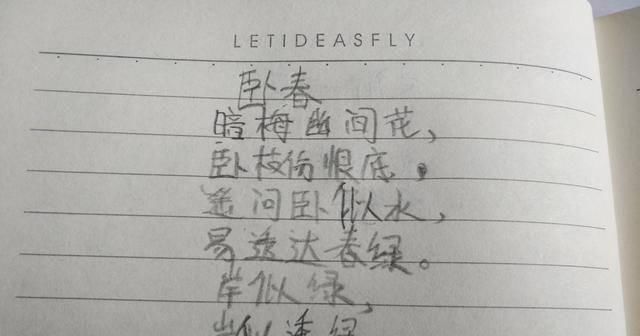 LETIDEASFLY
卧春
暗梅幽间花,
卧枝伤恨底,
遥问卧似水,
易透达春绿。
岸似绿,
岸似透绿